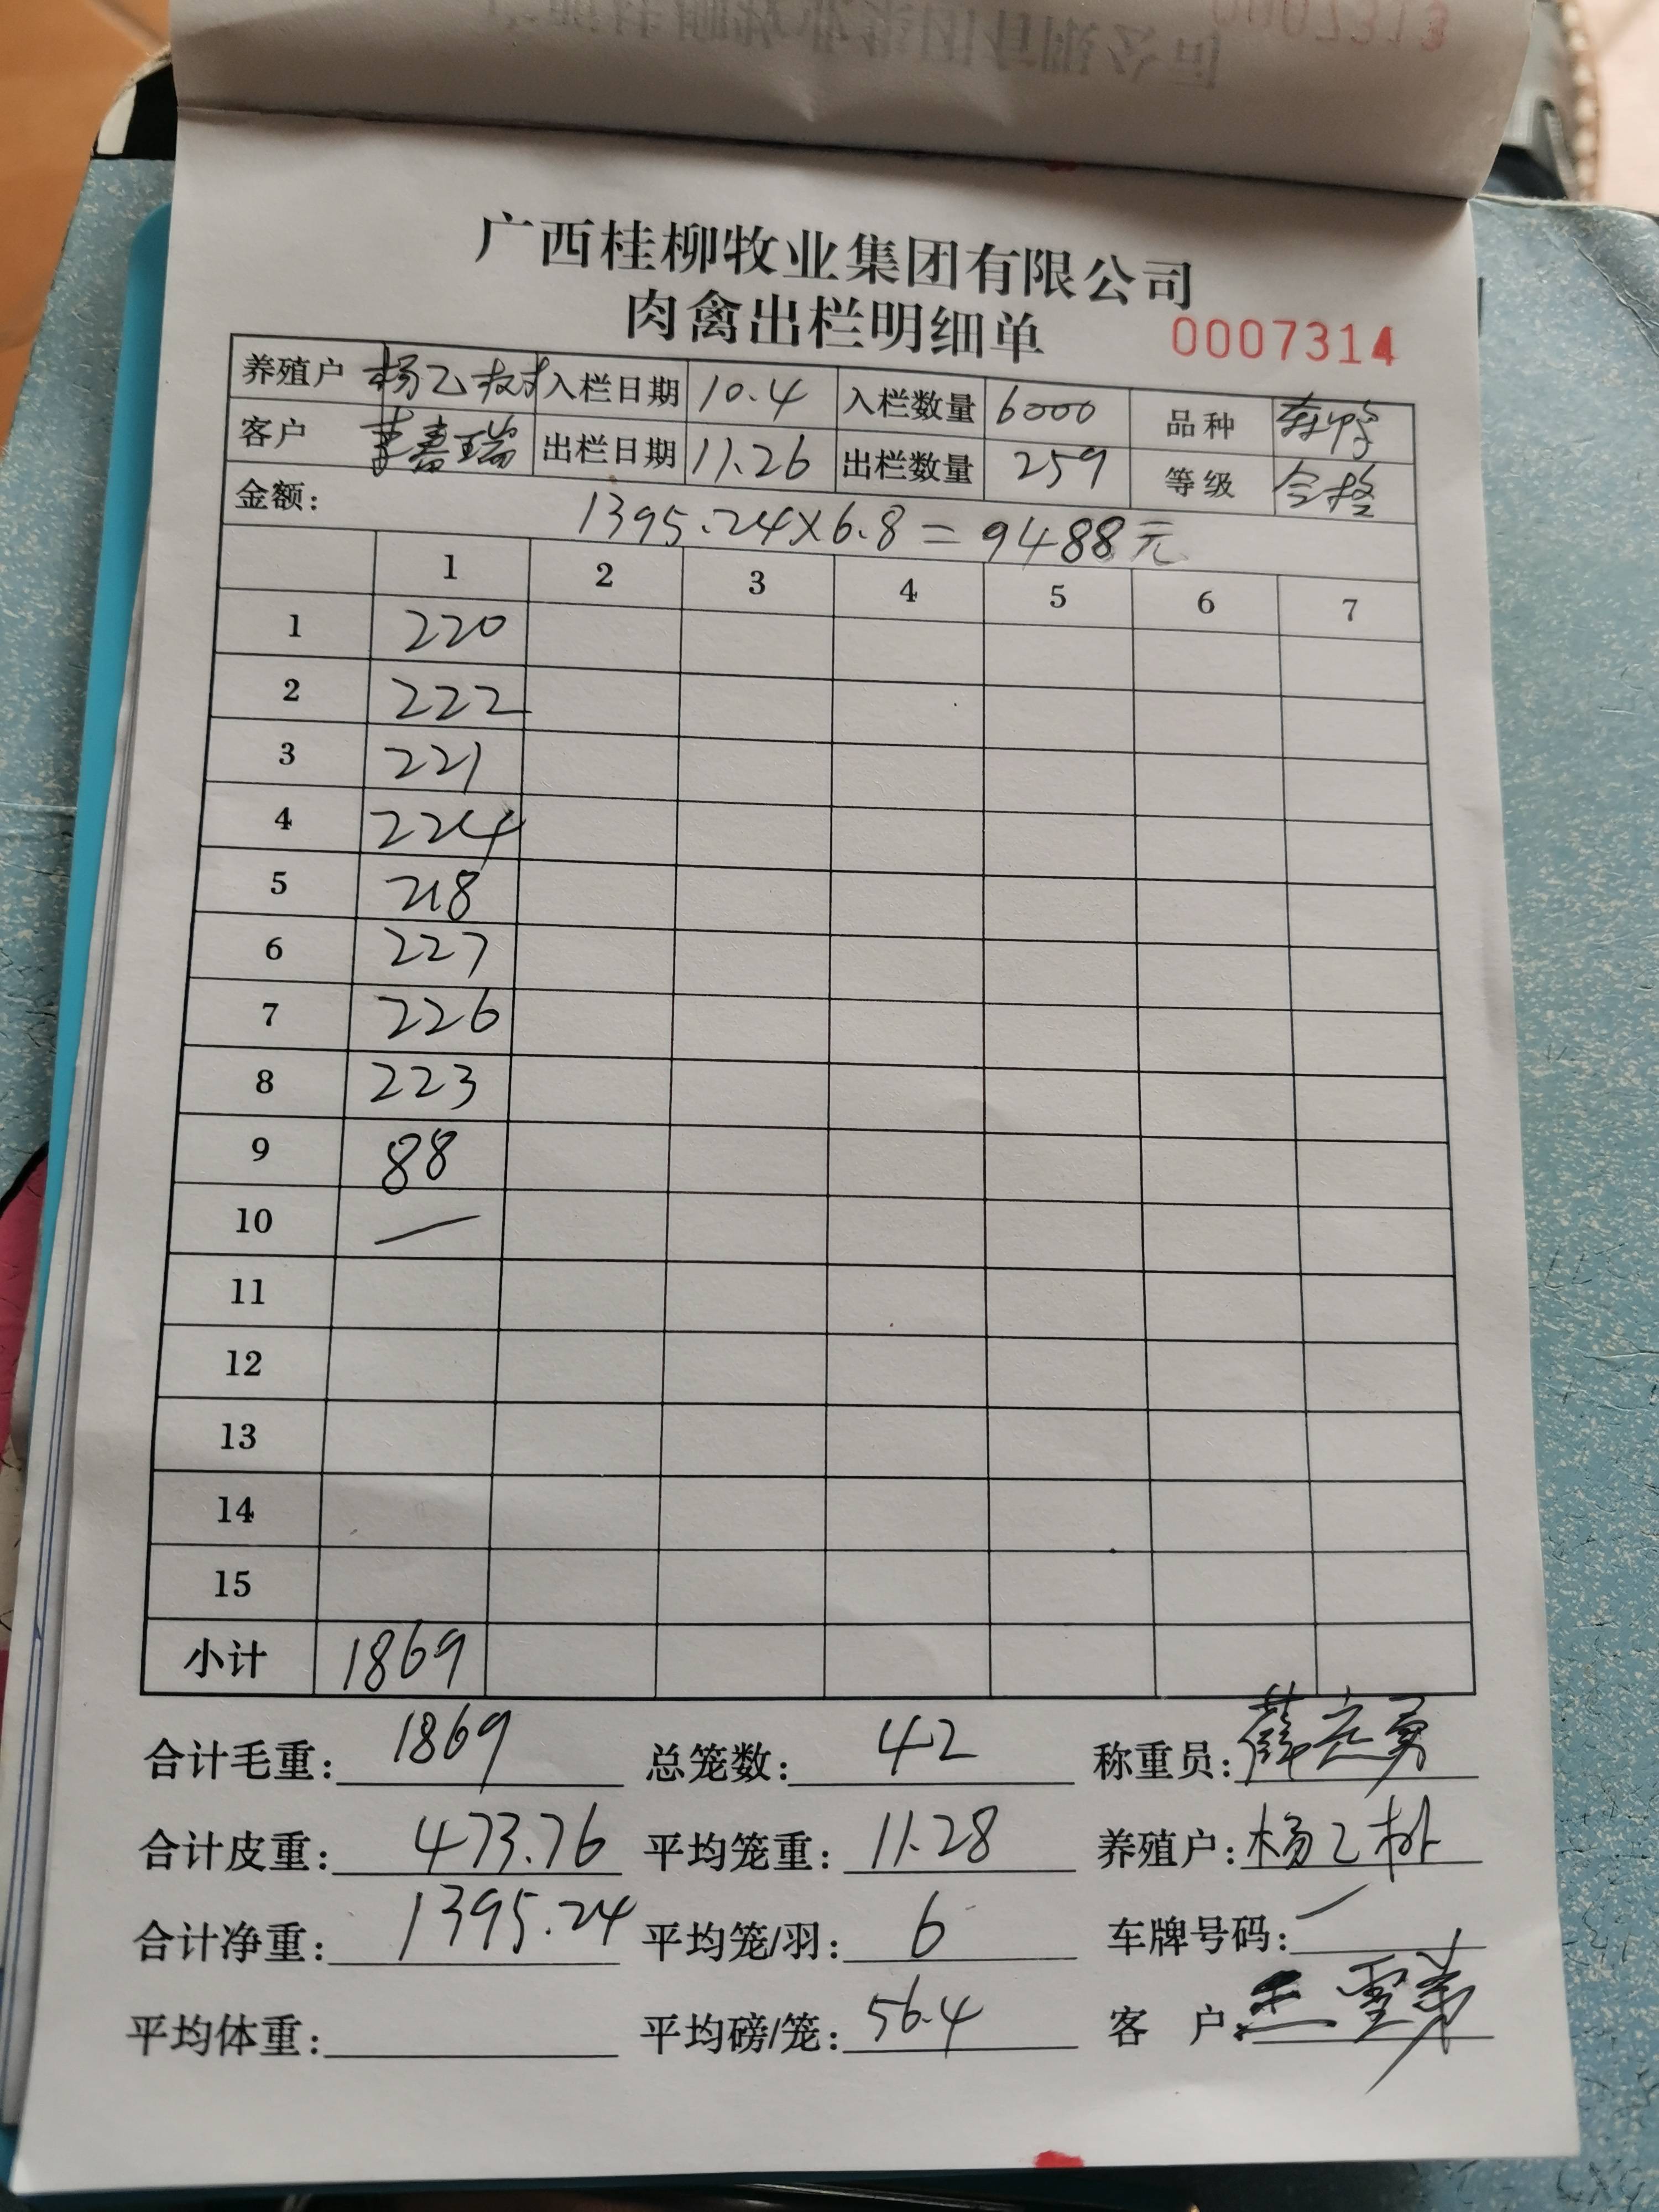 广西桂柳牧业集团有限公司
肉禽出栏明细单 0007314
养殖户 杨乙 入栏日期 10.4 入栏数量 6000 品种
客户 瑞 出栏日期 11.26 出栏数量 259 等级 合格
金额: 1395.24×6.8=9488元
1 2 3 4 5 6 7
1 220
2 222
3 221
4 224
5 218
6 227
7 226
8 223
9 88
10 —
11
12
13
14
15
小计 1869
合计毛重: 1869 总笼数: 42 称重员: 薛
合计皮重: 473.76 平均笼重: 11.28 养殖户: 杨乙
合计净重: 1395.24 平均笼/羽: 6 车牌号码: —
平均体重: 平均磅/笼: 56.4 客 户:
0007313